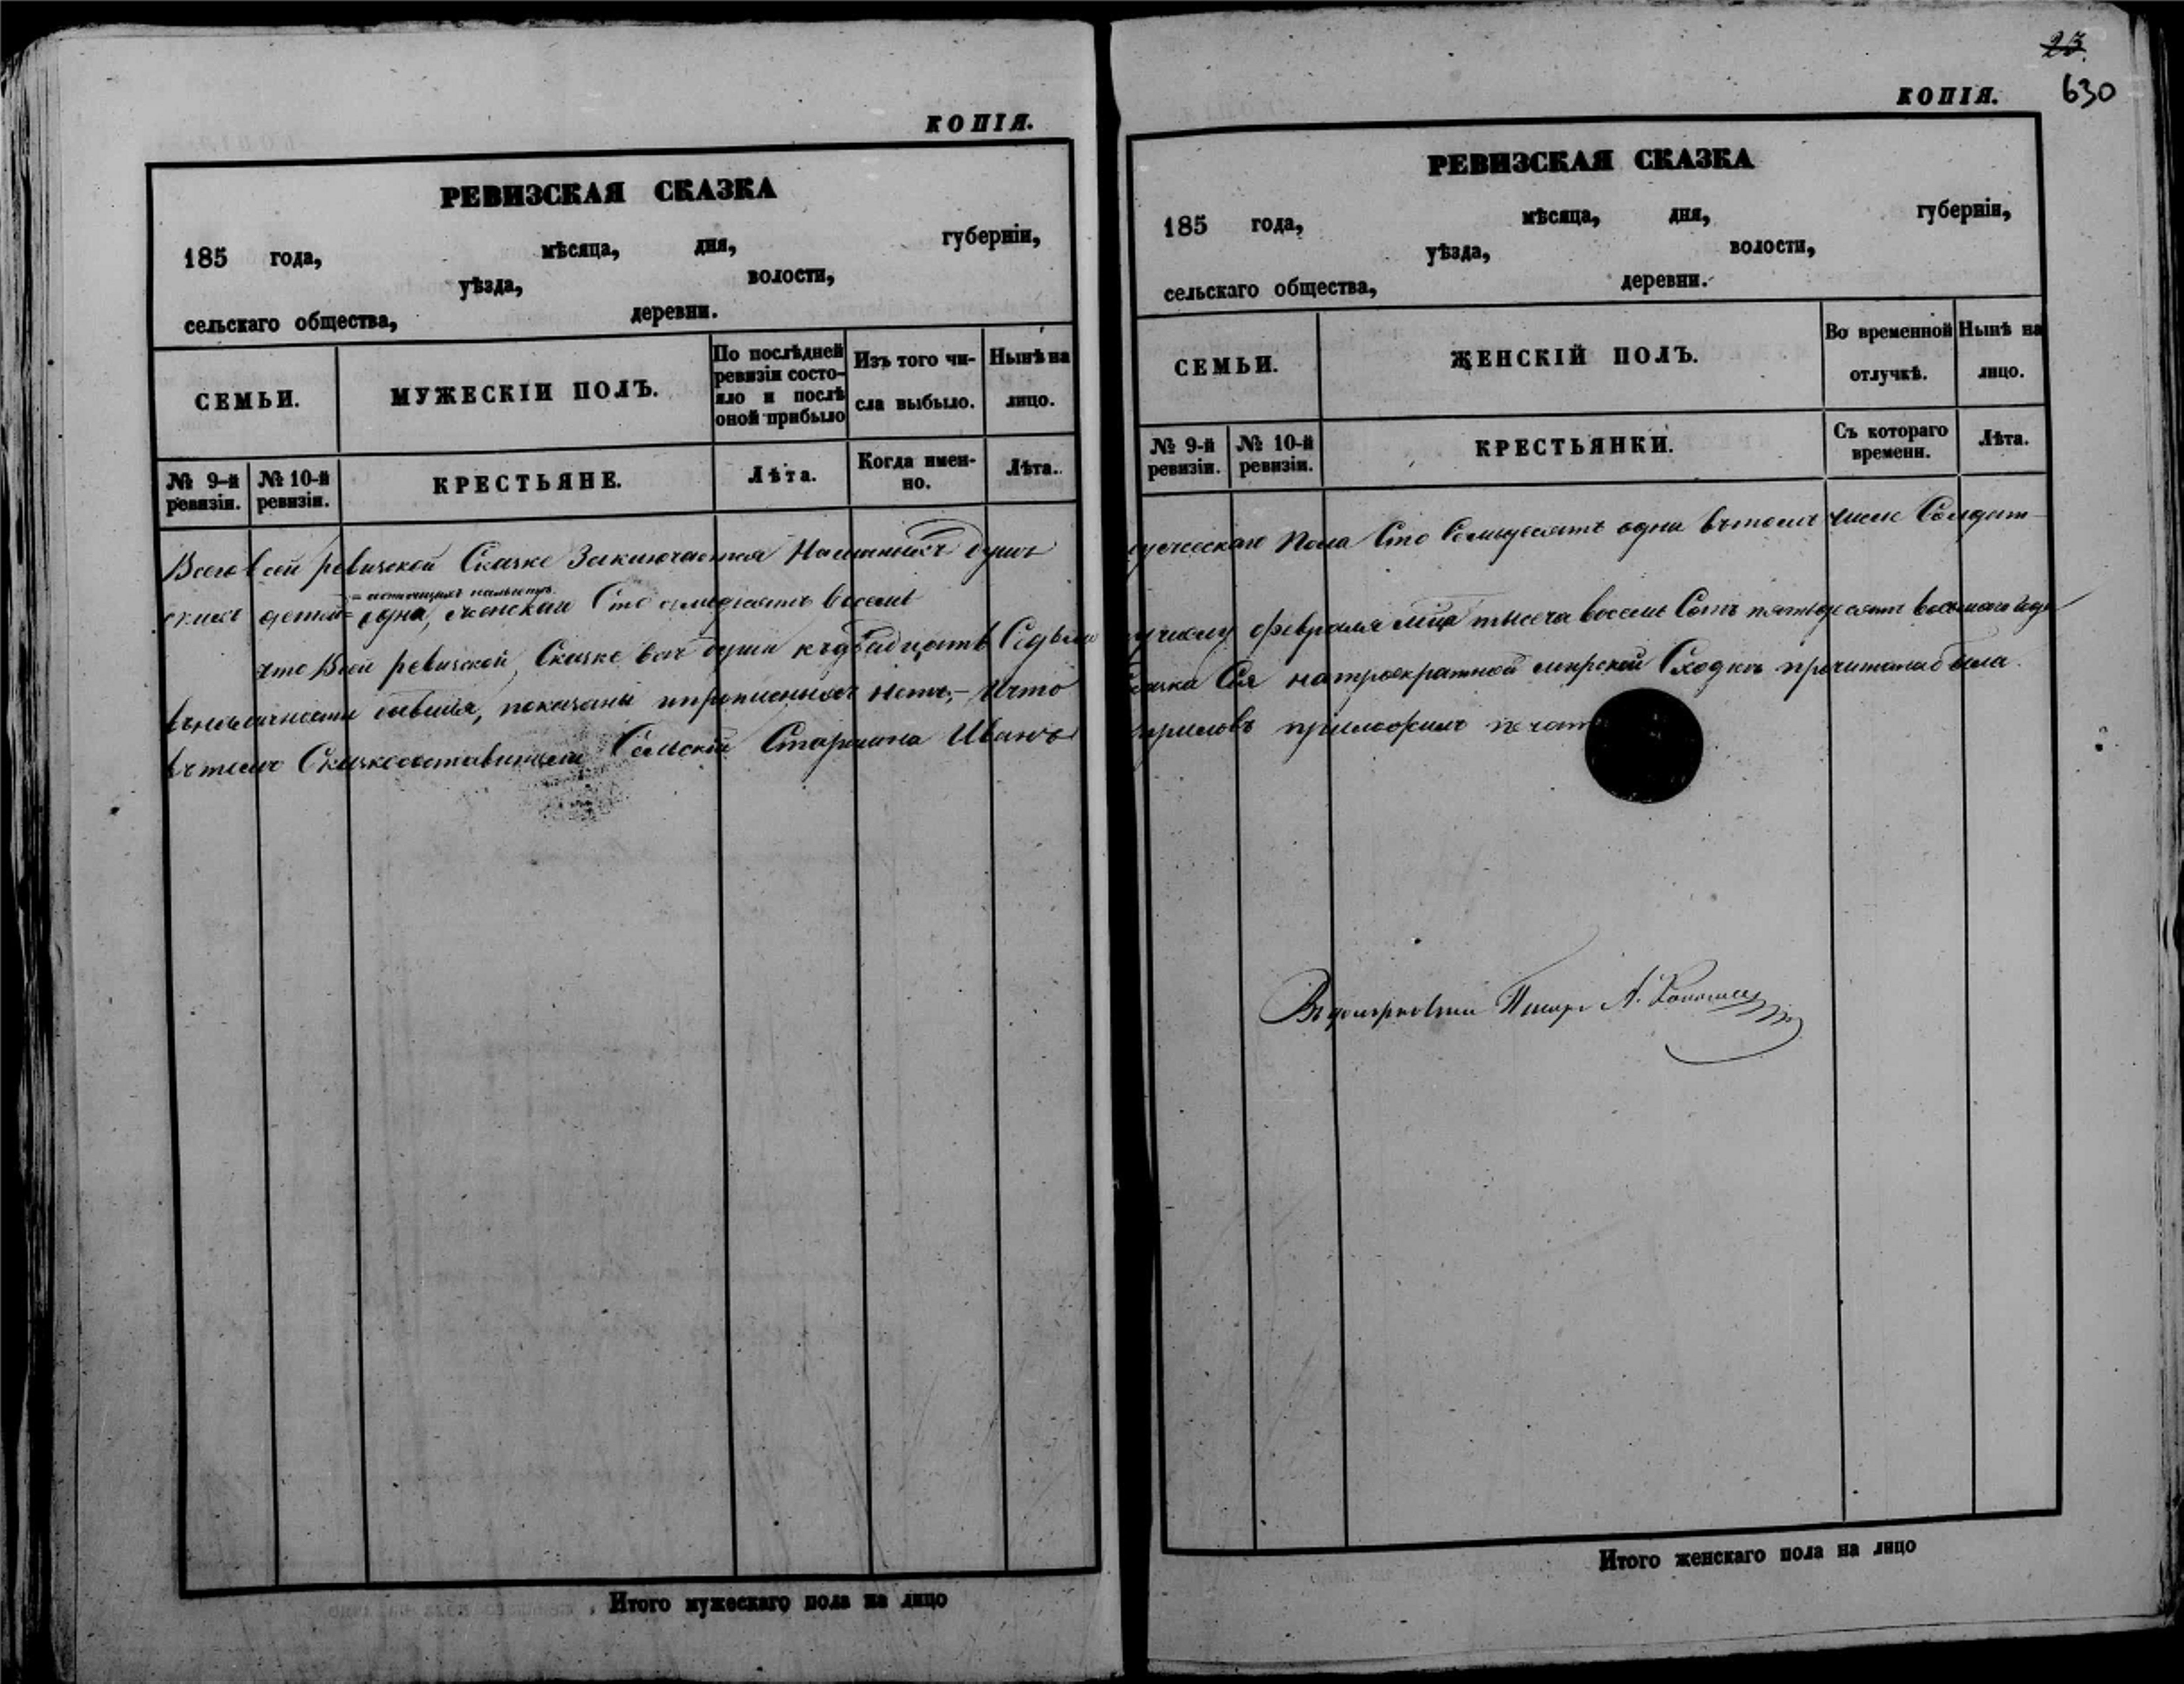 КОПІЯ.
РЕВИЗСКАЯ СКАЗКА
185 года, мѣсяца, дня, губерніи,
уѣзда, волости,
сельскаго общества, деревни.
СЕМЬИ.
МУЖЕСКІЙ ПОЛЪ.
По послѣдней
ревизіи состо-
яло и послѣ
оной прибыло
Изъ того чи-
сла выбыло.
Нынѣ на
лицо.
№ 9-й
ревизіи.
№ 10-й
ревизіи.
КРЕСТЬЯНЕ.
Лѣта.
Когда имен-
но.
Лѣта.
Всего всей ревизской Сказке Заключается Наличныхъ душъ
скихъ детей одна, женскаго Сто семьдесятъ восемь
что Всей ревизской Сказке все души къ двадцать Седьмо
въ наличности бывшія, показаны и прописныхъ нетъ, – Ичто
въ темъ Сказкосоставители Сельскій Старшина Иванъ
Итого мужескаго пола на лицо
23
630
КОПІЯ.
РЕВИЗСКАЯ СКАЗКА
185 года, мѣсяца, дня, губерніи,
уѣзда, волости,
сельскаго общества, деревни.
СЕМЬИ.
ЖЕНСКІЙ ПОЛЪ.
Во временной
отлучкѣ.
Нынѣ на
лицо.
№ 9-й
ревизіи.
№ 10-й
ревизіи.
КРЕСТЬЯНКИ.
Съ котораго
времени.
Лѣта.
Пола Сто Семьдесятъ одна въ томъ числе Солдат-
числу февраля мца тысеча восемь Сотъ пятьдесятъ восьмаго года
Сия на троекратной мирской Сходке прочитана была.
приложилъ печать
Писарь А.
Итого женскаго пола на лицо